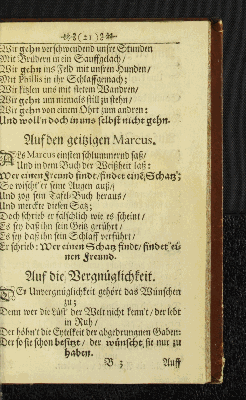 (21)
Wir gehn verschwendend unsre Stunden
Mit Brüdern in ein Sauffgelach/
Wir gehn ins Feld mit unsern Hunden/
Mit Phillis in ihr Schlaffgemach;
Wir kützlen uns mit stetem Wandren/
Wir gehn um niemals still zu stehn/
Wir gehn von einem Ohrt zum andren:
Und woll'n doch in uns selbst nicht gehn.
Auf den geitzigen Marcus.
Als Marcus einsten schlummrend saß/
Und in dem Buch der Weißheit laß:
Wer einen Freund findt/ findet eine Schatz;
So wischt er seine Augen auß/
Und zog sein Tafel-Buch heraus/
Und merckte diesen Satz;
Doch schrieb er fälschlich wie es scheint/
Es sey daß ihn sein Geitz gerührt/
Es sey daß ihn sein Schlaff verführt/
Er schrieb: Wer einen Schatz findt/ findet ei-
nen Freund.
Auf die Vergnüglichkeit.
Der Unvergnüglichkeit gehört das Wünschen
zu;
Denn wer die Lüst' der Welt nicht kennt/ der lebt
in Ruh/
Der höhn't die Eytelkeit der abgedrungnen Gaben:
Der so sie schon besitzt/ der wünscht sie nur zu
haben.
B 3
Auff